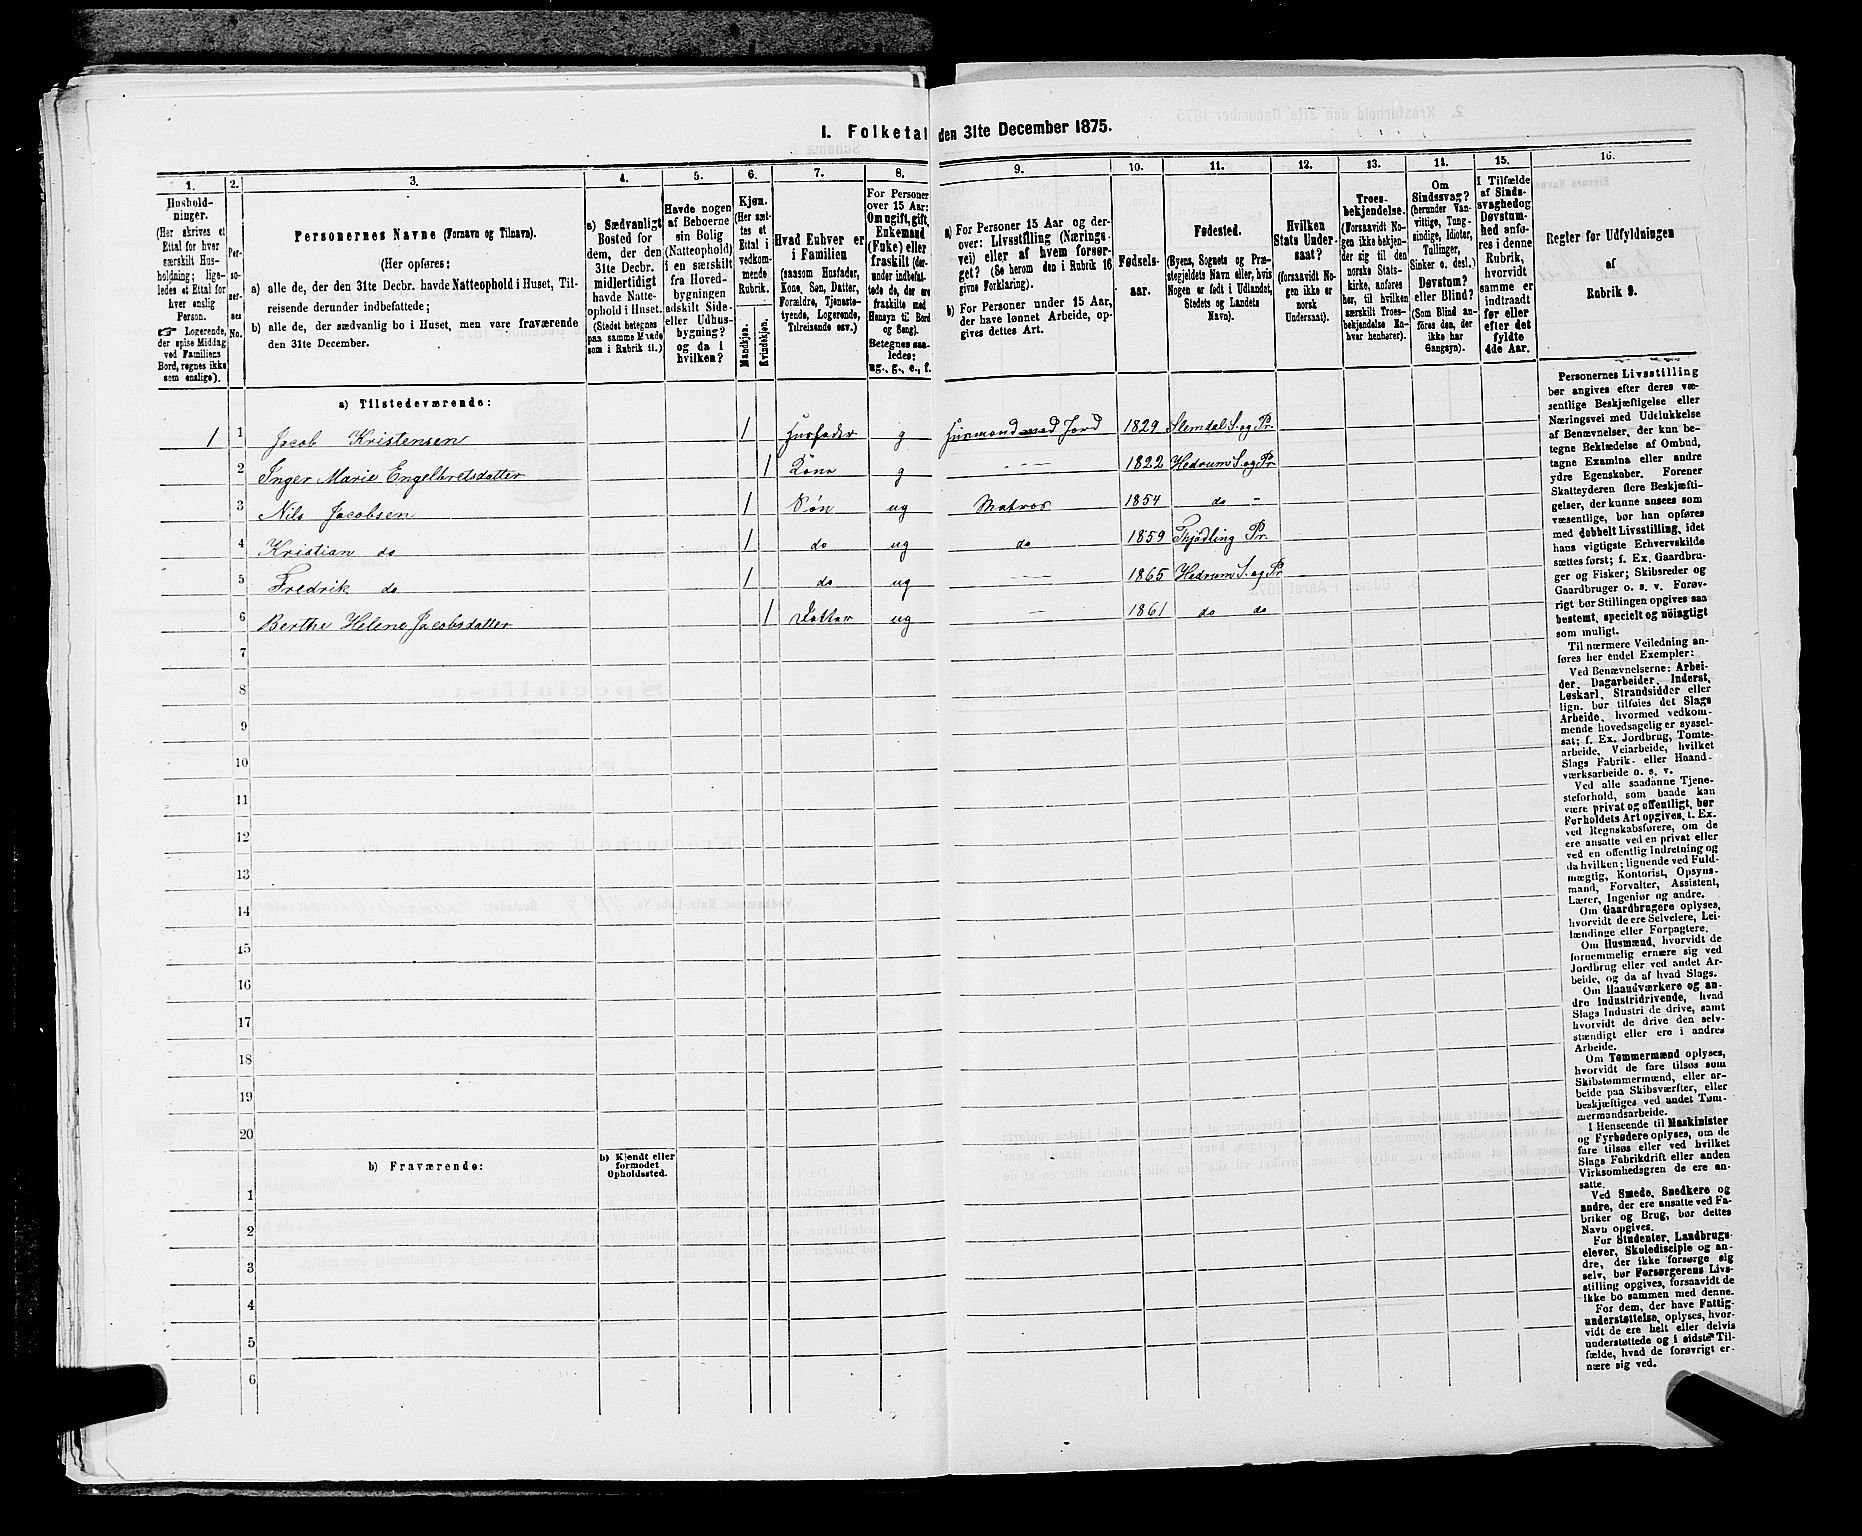 I. Folketal den 31te December 1875.
1. 2. 3. 4. 5. 6. 7. 8. 9. 10. 11. 12. 13. 14. 15. 16.
Hushold-
ninger.
(Her skrives et
Ettal for hver
særskilt Hus-
holdning; lige-
ledes et Ettal for
hver enslig
Person.
☞ Logerende,
der spise Middag
ved Familiens
Bord, regnes ikke
som enslige).
Per-
so-
ner-
nes
No.
Personernes Navne (Fornavn og Tilnavn).
(Her opføres:
a) alle de, der den 31te Decbr. havde Natteophold i Huset, Til-
reisende derunder indbefattede;
b) alle de, der sædvanlig bo i Huset, men vare fraværende
den 31te December.
a) Sædvanligt
Bosted for
dem, der den
31te Decbr.
midlertidigt
havde Natte-
ophold i Huset.
(Stedet betegnes
paa samme Maade
som i Rubrik 11.)
Havde nogen
af Beboerne
sin Bolig
(Natteophold)
i en særskilt
fra Hoved-
bygningen
adskilt Side-
eller Udhus-
bygning?
og da i
hvilken?
Kjøn.
(Her sæt-
tes et
Ettal i
vedkom-
mende
Rubrik.
Mandkjøn.
Kvindekjøn.
Hvad Enhver er
i Familien
(saasom Husfader,
Kone, Søn, Datter,
Forældre, Tjeneste-
tyende, Logerende,
Tilreisende osv.)
For Personer
over 15 Aar:
Om ugift, gift,
Enkemand
(Enke) eller
fraskilt (der-
under indbefat-
tede de, der ere
fraskilte med
Hensyn til Bord
og Seng).
Betegnes saa-
ledes:
ug., g., e., f.
a) For Personer 15 Aar og der-
over: Livsstilling (Nærings-
vei) eller af hvem forsør-
get? (Se herom den i Rubrik 16
givne Forklaring).
b) For Personer under 15 Aar,
der have lønnet Arbeide, op-
gives dettes Art.
Fødsels-
aar.
Fødested.
(Byens, Sognets og Præ-
stegjeldets Navn eller, hvis
Nogen er født i Udlandet,
Stedets og Landets
Navn).
Hvilken
Stats Under-
saat?
(forsaavidt No-
gen ikke er
norsk
Undersaat).
Troes-
bekjendelse.
(Forsaavidt No-
gen ikke bekjen-
der sig til den
norske Stats-
kirke, anføres
her, til hvilken
særskilt Troes-
bekjendelse En-
hver henhører).
Om
Sindssvag?
(herunder Van-
vittige, Tung-
sindige, Idioter,
Tullinger,
Sinker o. desl.)
Døvstum?
eller Blind?
(Som Blind an-
føres den, der
ikke har
Gangsyn).
I Tilfælde
af Sinds-
svaghed og
Døvstum-
hed anfø-
res i denne
Rubrik,
hvorvidt
samme er
indtraadt
før eller
efter det
fyldte
4de Aar.
Regler for Udfyldningen
af
Rubrik 9.
a) Tilstedeværende:
1 1 Jacob Kristensen 1 Husfader g Husmand med Jord 1829 Slemdal S. og Pr.
2 Inger Marie Engelbretsdatter 1 Kone g — 1822 Hedrum S. og Pr
3 Nils Jacobsen 1 Søn ug Matros 1854 do -
4 Kristian do 1 do ug do 1859 Thjødling Pr.
5 Fredrik do 1 do ug — 1865 Hedrum S. og Pr
6 Berthe Helene Jacobsdatter 1 Datter ug — 1861 do do
7
8
9
10
11
12
13
14
15
16
17
18
19
20
b) Fraværende:
b) Kjendt eller
formodet
Opholdssted.
1
2
3
4
5
6
Personernes Livsstilling
bør angives efter deres væ-
sentlige Beskjæftigelse eller
Næringsvei med Udelukkelse
af Benævnelser, der kun be-
tegne Beklædelse af Ombud,
tagne Examina eller andre
ydre Egenskaber. Forener
Skatteyderen flere Beskjæfti-
gelser, der kunne ansees som
væsentlige, bør han opføres
med dobbelt Livsstilling, idet
hans vigtigste Erhvervskilde
sættes først; f. Ex. Gaardbru-
ger og Fisker; Skibsreder og
Gaardbruger o. s. v. Forøv-
rigt bør Stillingen opgives saa
bestemt, specielt og nöiagtigt
som muligt.
Til nærmere Veiledning an-
føres her endel Exempler:
Ved Benævnelserne: Arbei-
der, Dagarbeider, Inderst,
Løskarl, Strandsidder eller
lign. bør tilføies det Slags
Arbeide, hvormed vedkom-
mende hovedsagelig er syssel-
sat; f. Ex. Jordbrug, Tomte-
arbeide, Veiarbeide, hvilket
Slags Fabrik- eller Haand-
værksarbeide o. s. v.
Ved alle saadanne Tjene-
steforhold, som baade kan
være privat og offentligt, bør
Forholdets Art opgives, t. Ex.
ved Regnskabsførere, om de
ere ansatte ved en privat eller
ved en offentlig Indretning og
da hvilken; lignende ved Fuld-
mægtig, Kontorist, Opsyns-
mand, Forvalter, Assistent,
Lærer, Ingeniør og andre.
Om Gaardbrugere oplyses,
hvorvidt de ere Selveiere, Lei-
lændinge eller Forpagtere.
Om Husmænd, hvorvidt de
fornemmelig ernære sig ved
Jordbrug eller ved andet Ar-
beide, og da af hvad Slags.
Om Haandværkere og an-
dre Industridrivende, hvad
Slags Industri de drive, samt
hvorvidt de drive den selv-
stændigt eller ere i andres
Arbeide.
Om Tømmermænd oplyses,
hvorvidt de fare tilsøs som
Skibstømmermænd, eller ar-
beide paa Skibsværfter, eller
beskjæftiges ved andet Tøm-
mermandsarbeide.
I Henseende til Maskinister
og Fyrbødere oplyses, om de
fare tilsøs eller ved hvilket
Slags Fabrikdrift eller anden
Virksomhedsgren de ere an-
satte.
Ved Smede, Snedkere og
andre, der ere ansatte ved Fa-
briker og Brug, bør dettes
Navn opgives.
For Studenter, Landbrugs-
elever, Skoledisciple og an-
dre, der ikke forsørge sig
selv, bør Forsørgerens Livs-
stilling opgives, forsaavidt de
ikke bo sammen med denne.
For dem, der have Fattig-
understøttelse, oplyses, hvor-
vidt de ere helt eller delvis
understøttede og i sidste Til-
fælde, hvad de forøvrigt er-
nære sig ved.